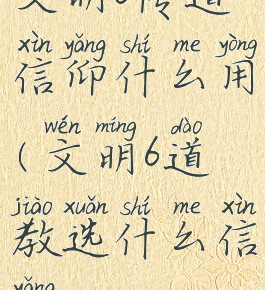 文明6传道
xìn yǎng shí me yòng
信仰什么用
wén míng dào
(文明6道
jiào xuǎn shí me xìn
教选什么信
yǎng